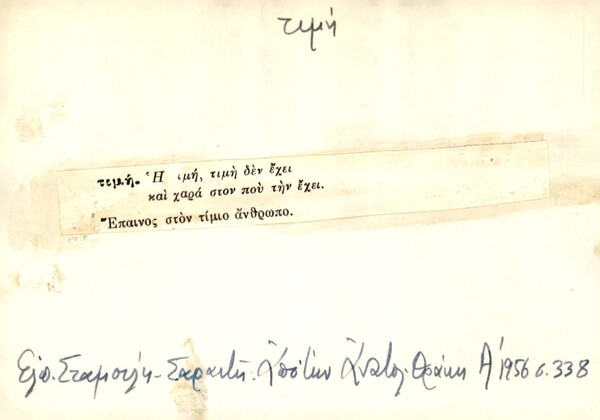 τιμή
τιμή. Ἡ ιμή, τιμὴ δὲν ἔχει
καὶ χαρά στον ποὺ τὴν ἔχει.
Ἔπαινος στὸν τίμιο ἄνθρωπο.
Ἐλπ. Σταμούλη-Σαραντῆ. Ἀπὸ τὴν Ἀνατολ. Θράκη Α' 1956 σ. 338